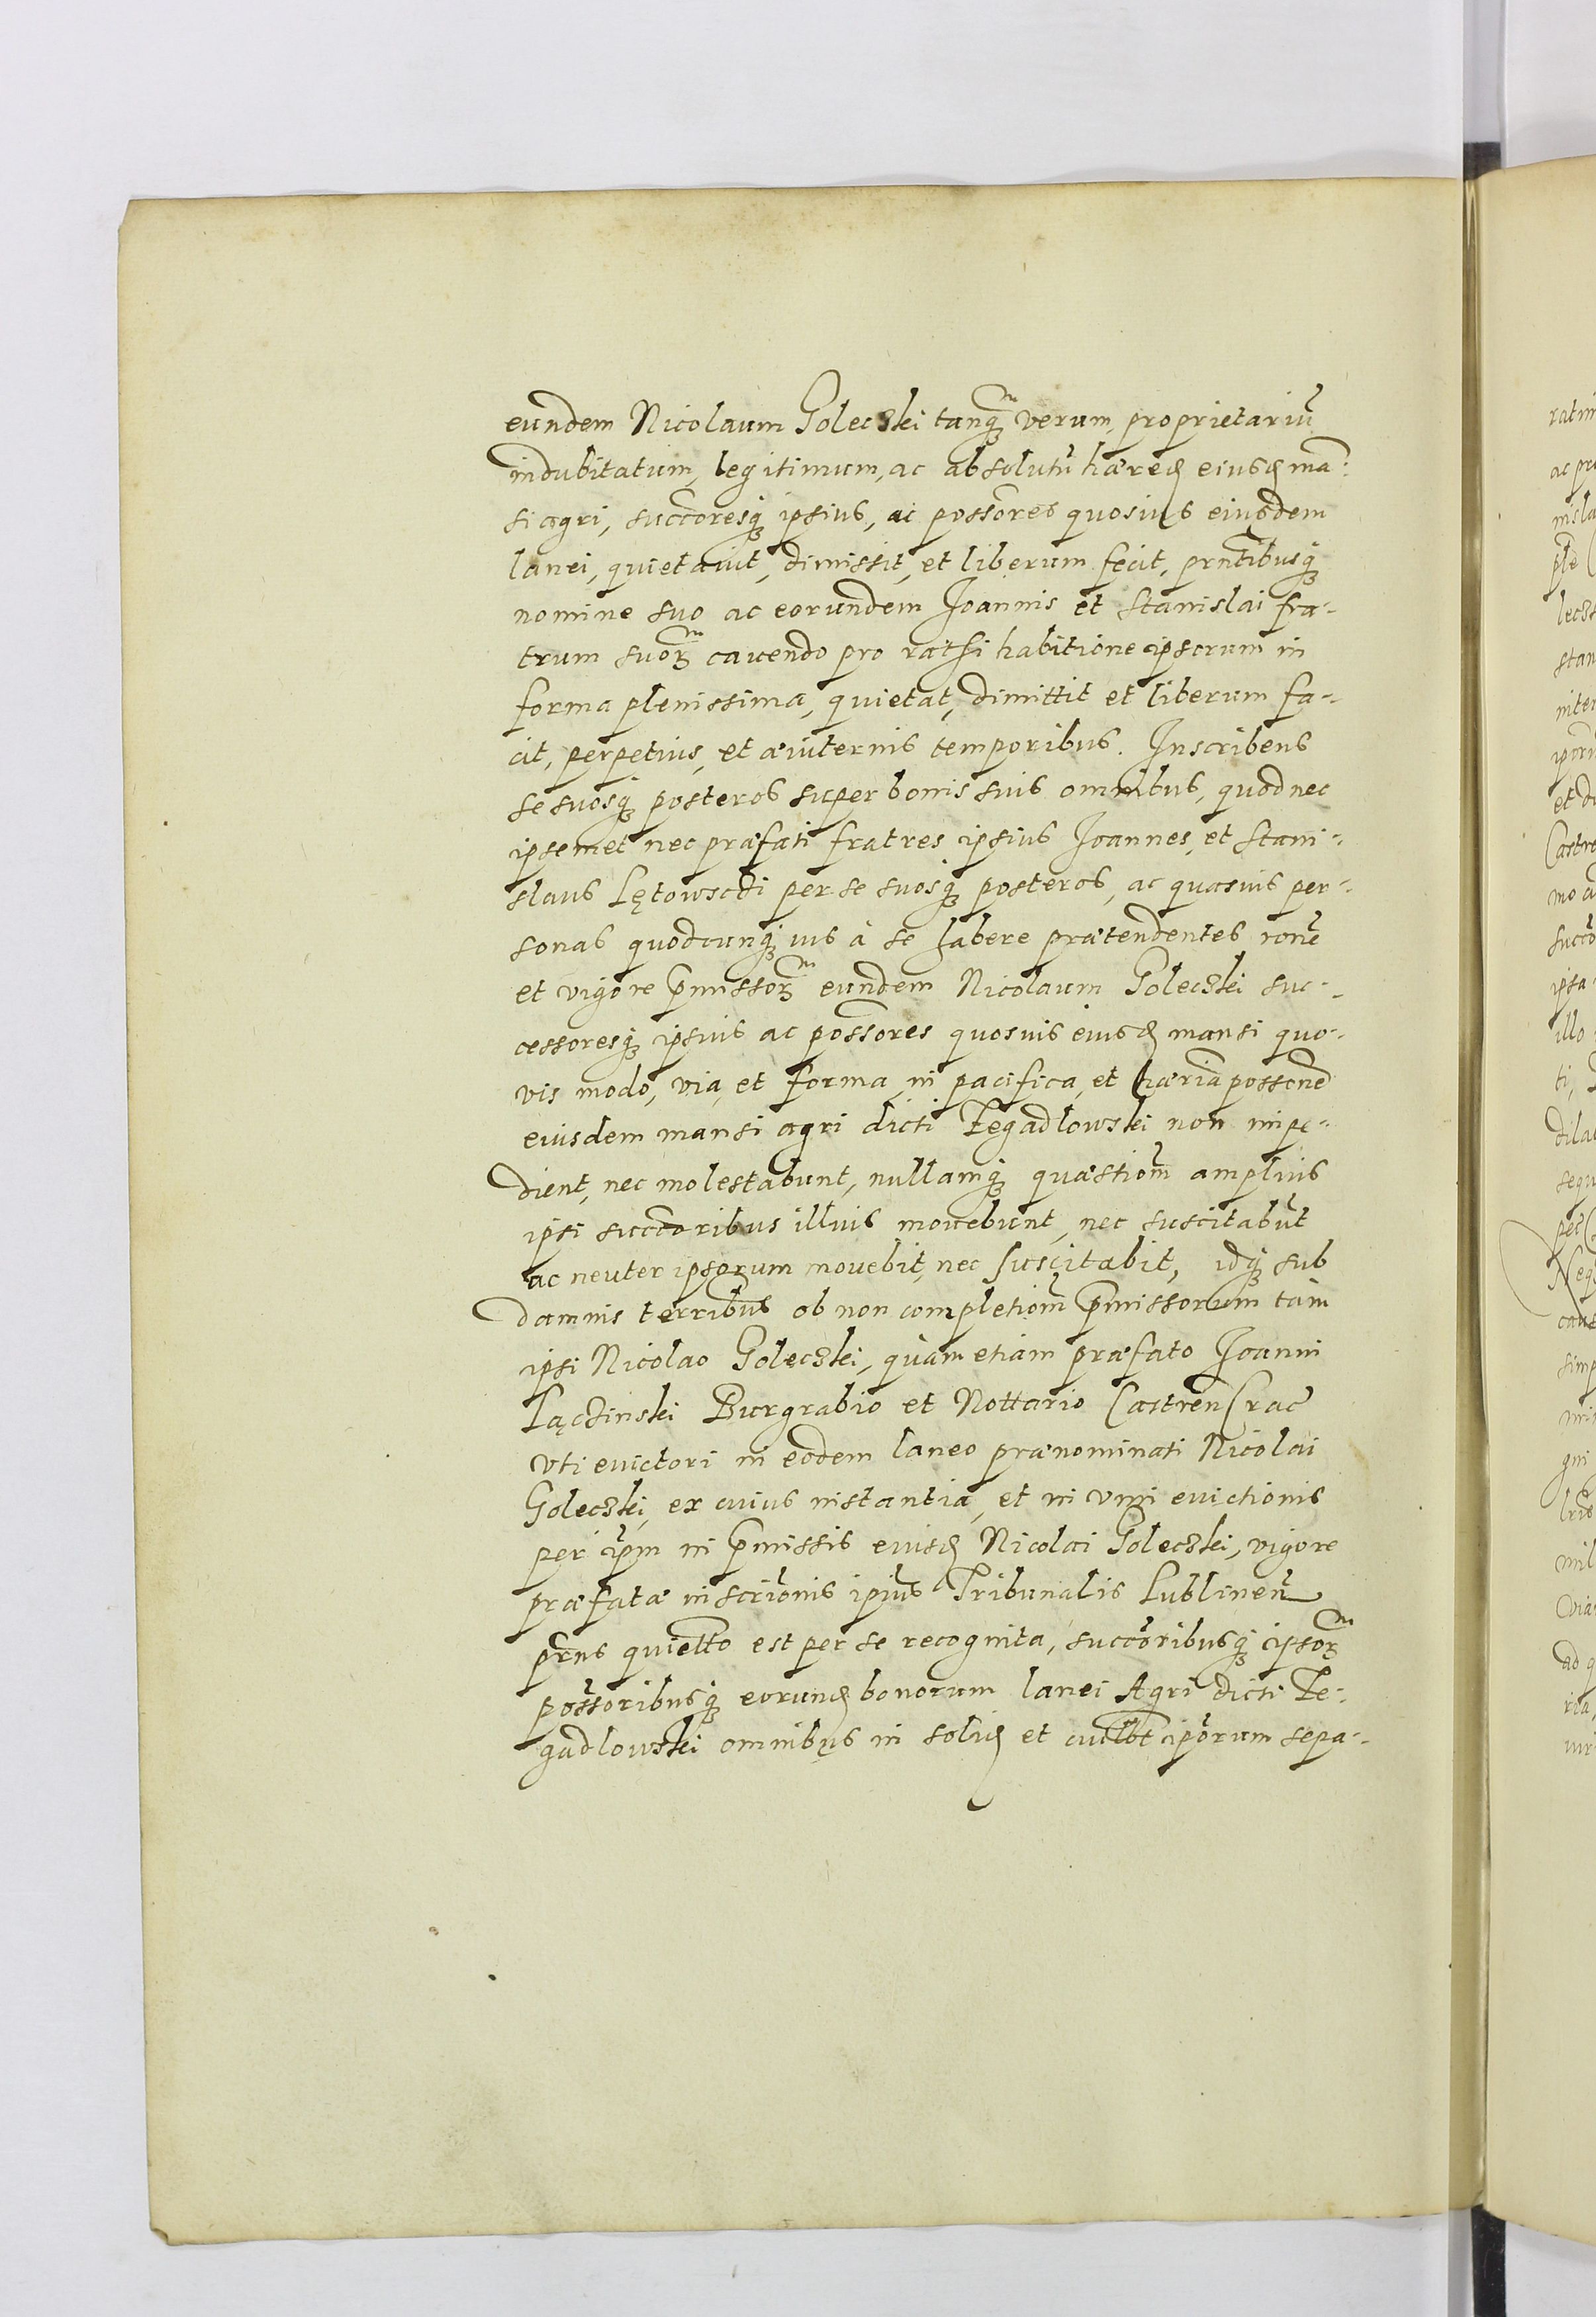 eundem Nicolaum Goleczki tanq̃ȝ verum, proprietariũ
indubitatum, legitimum, ac absolutũ hæredȩ eiusdȩ man-
si agri, succoresqȝ ipsius, ac possores quosius eiusdem
lanei, quietauit, dimissit, et liberum fecit, prñtibusqȝ
nomine suo ac eorundem Joannis et Stanislai fra-
trum suorꝝ cauendo pro rathi habitione ipsorum in
forma plenissima, quietat, dimittit et liberum fa-
cit, perpetius, et æuiternis temporibus. Inscribens
se suosqȝ posteros super bonis suis omnibus, quod nec
ipsemet nec præfati fratres ipsius Joannes, et Stani-
slaus Lętowsczi per se suosqȝ posteros, ac quasuis per-
sonas quodcunqȝ ius à se habere prætendentes rone
et vigore p̃missorꝝ eundem Nicolaum Goleczki suc-
cessoresqȝ ipsius ac possores quosuis eiusdȩ mansi quo-
vis modo, via, et forma, in pacifica, et hæria possone
eiusdem mansi agri dicti Zegadlowski non impe-
dient, nec molestabunt, nullamqȝ quæstiom amplius
ipsi succoribus illius mouebunt, nec suscitabũt
ac neuter ipsorum mouebit, nec suscitabit, idqȝ sub
damnis terribus ob non completiom p̃missorum tàm
ipsi Nicolao Goleczki, quàm etiam præfato Joanni
Lączinski Burgrabio et Nottario Castren Crac
vti euictori in eodem laneo prænominati Nicolai
Goleczki, ex cuius instantia, et in vim euictionis
per ip̃m in p̃missis eiusdȩ Nicolai Goleczki, vigore
præfatæ inscrionis ipius Tribunalis Lublinen̄
prñs quietto est per se recognita, succoribusqȝ ipsorꝝ
possoribusqȝ eorundȩ bonorum lanei Agri dicti Ze-
gadlowski omnibus in solidȩ et cuilbt ip̃orum sepa-